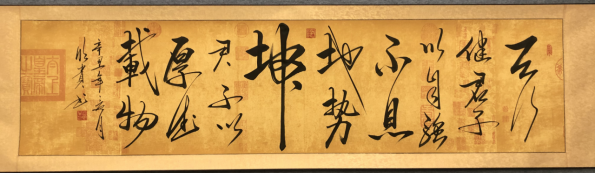 天行
健君子
以自强
不息
地势
坤
君子以
厚德
載物
辛丑年